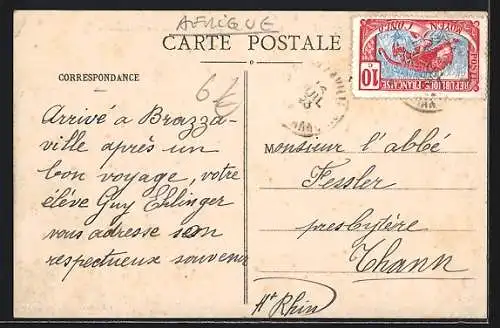 AFRIQUE
CARTE POSTALE
CORRESPONDANCE
6€
Arrivé à Brazza-
ville après un
bon voyage, votre
élève Guy Ehlinger
vous adresse son
respectueux souvenir
Monsieur l'abbé
Fessler
presbytère
Thann
Ht Rhin
CONGO
MOYEN
POSTES
10
RÉPUBLIQUE FRANÇAISE